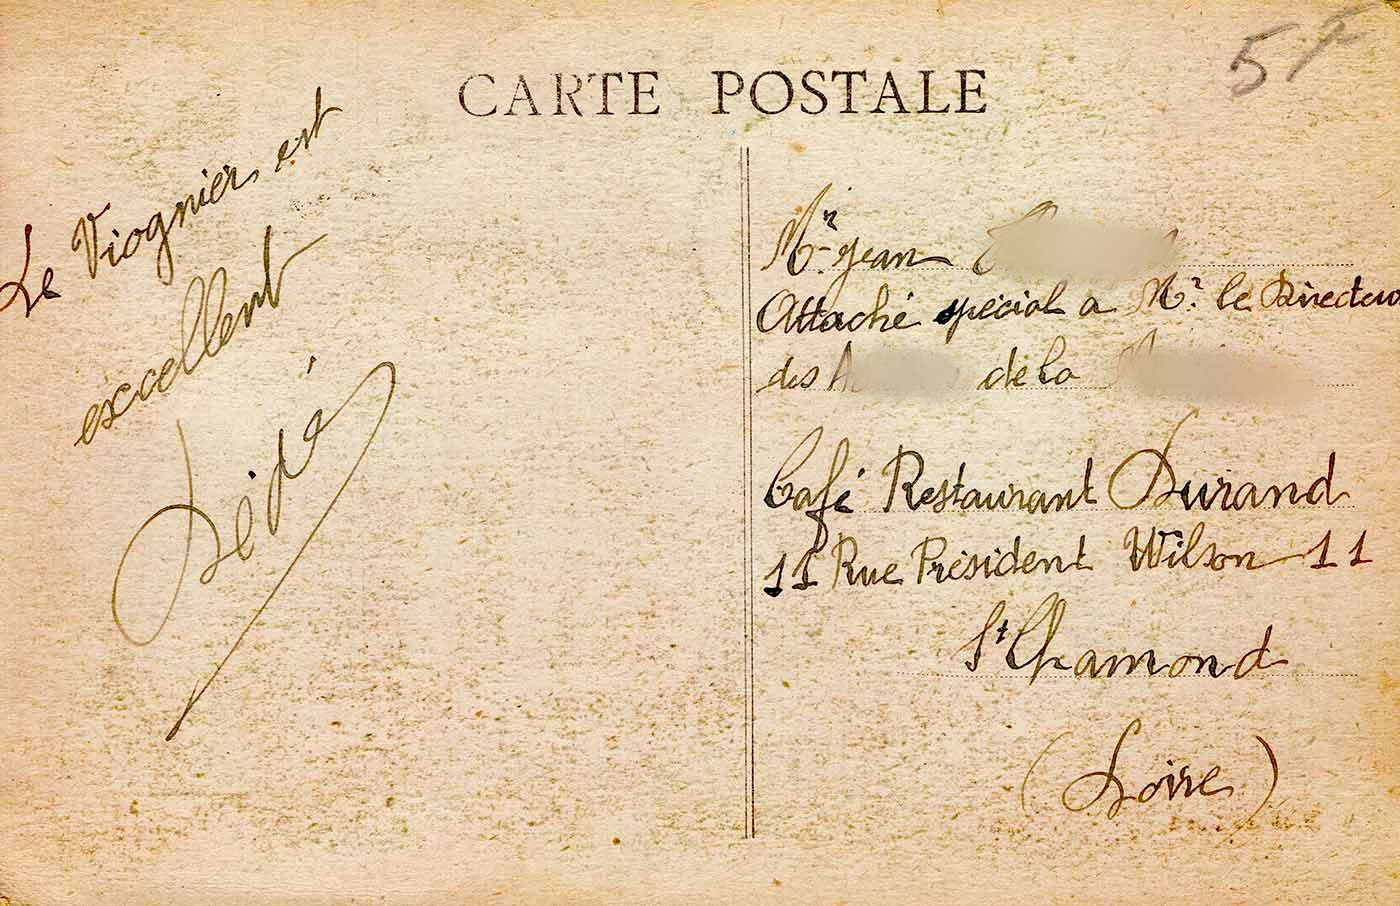 CARTE POSTALE
5F
Le Viognier est
excellent
Dédé
Mr. Jean
Attaché spécial a Mr. le Directeur
des A de la
Café Restaurant Durand
11 Rue Président Wilson 11
St Chamond
(Loire)